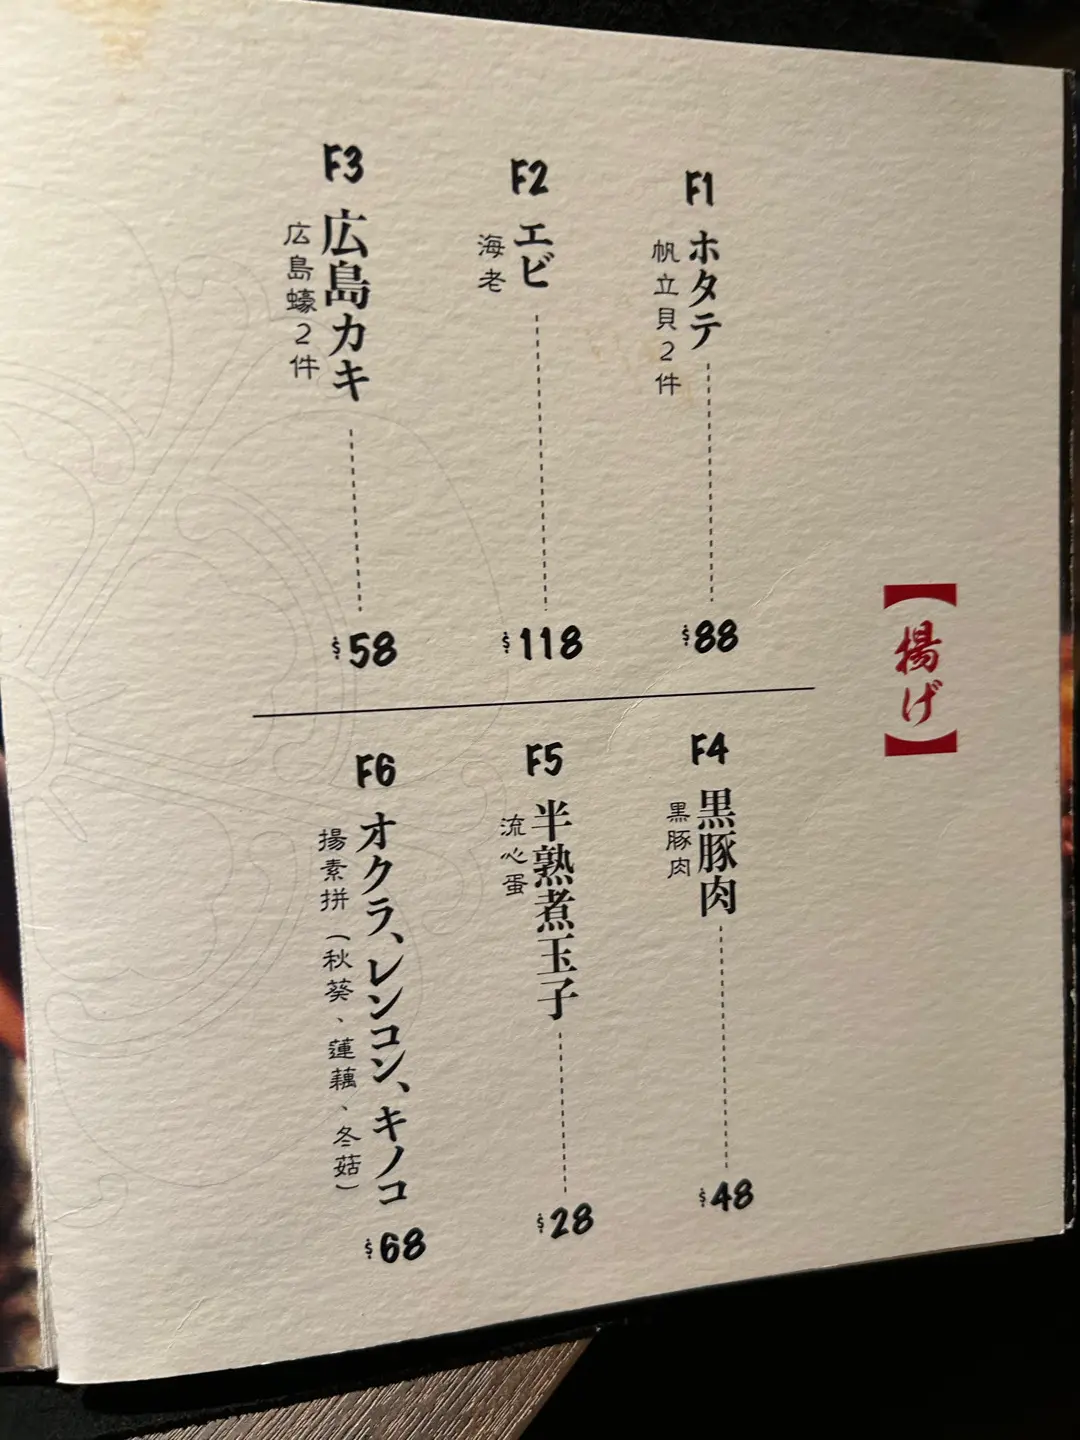 【揚げ】
F1
ホタテ
帆立貝2件
$88
F2
エビ
海老
$118
F3
広島カキ
広島蠔2件
$58
F4
黒豚肉
黒豚肉
$48
F5
半熟煮玉子
流心蛋
$28
F6
オクラ、レンコン、キノコ
揚素拼（秋葵、蓮藕、冬菇）
$68